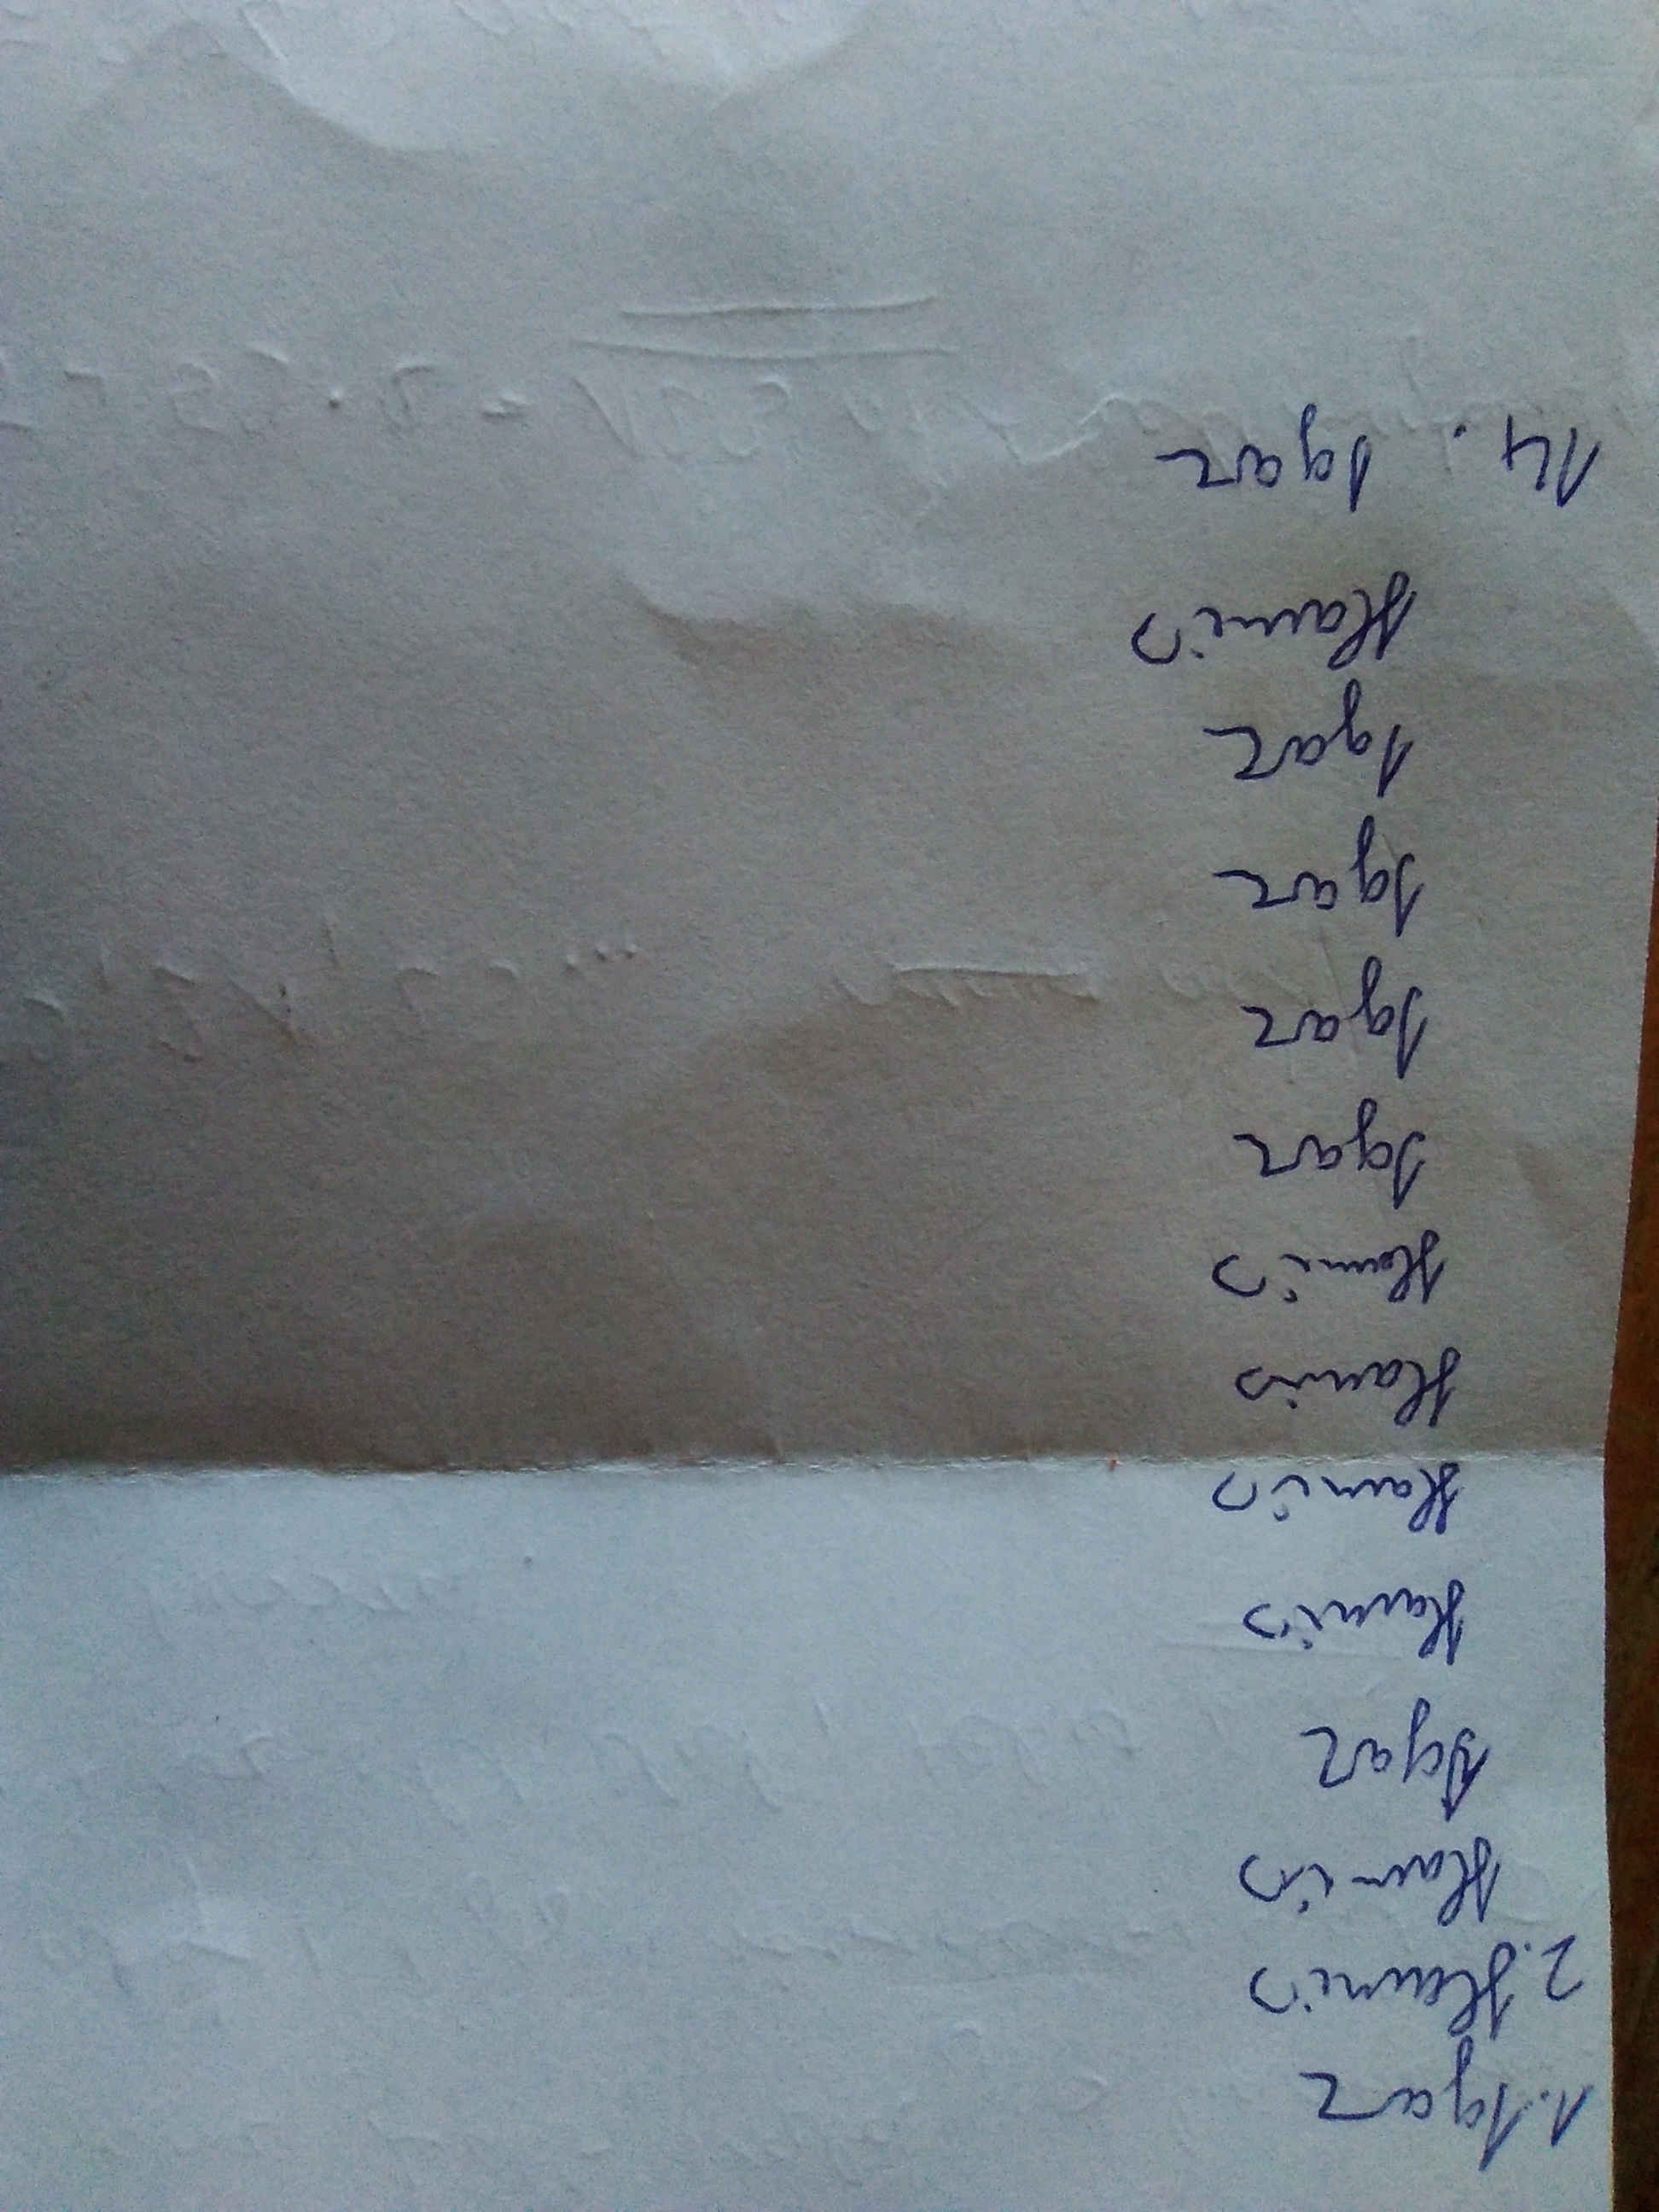 1. Igaz
2. Hamis
Hamis
Igaz
Hamis
Hamis
Hamis
Hamis
Igaz
Igaz
Igaz
Igaz
Hamis
14. Igaz